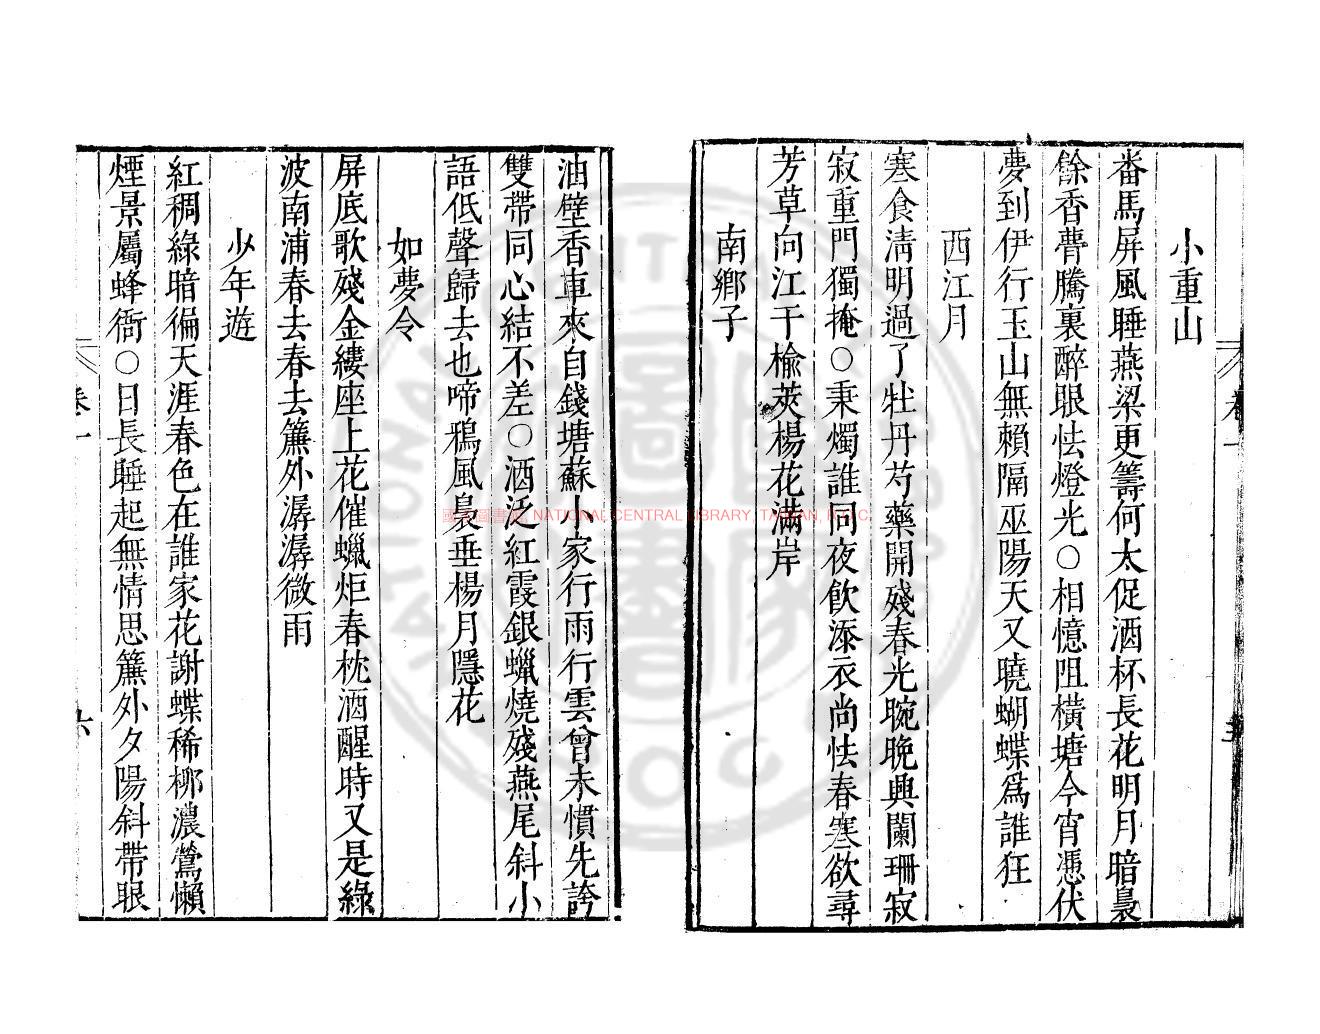 小重山
番馬屏風睡燕梁更籌何太促酒杯長花明月暗裊
餘香瞢騰裏醉眼怯燈光○相憶阻橫塘今宵憑伏
夢到伊行玉山無賴隔巫陽天又曉蝴蝶爲誰狂
西江月
寒食淸明過了牡丹芍藥開殘春光晼晚興闌珊寂
寂重門獨掩○秉燭誰同夜飮添衣尚怯春寒欲尋
芳草向江干楡莢楊花滿岸
南鄉子
油壁香車來自錢塘蘇小家行雨行雲曾未慣先誇
雙帶同心結不差○酒泛紅霞銀蠟燒殘燕尾斜小
語低聲歸去也啼鴉風裊垂楊月隱花
如夢令
屏底歌殘金縷座上花催蠟炬春枕酒醒時又是綠
波南浦春去春去簾外潺潺微雨
少年遊
紅稠綠暗徧天涯春色在誰家花謝蝶稀栁濃鶯懶
煙景屬蜂衙○日長睡起無情思簾外夕陽斜帶眼
卷一
六
國家圖書館, NATIONAL CENTRAL LIBRARY, TAIWAN, R.O.C.